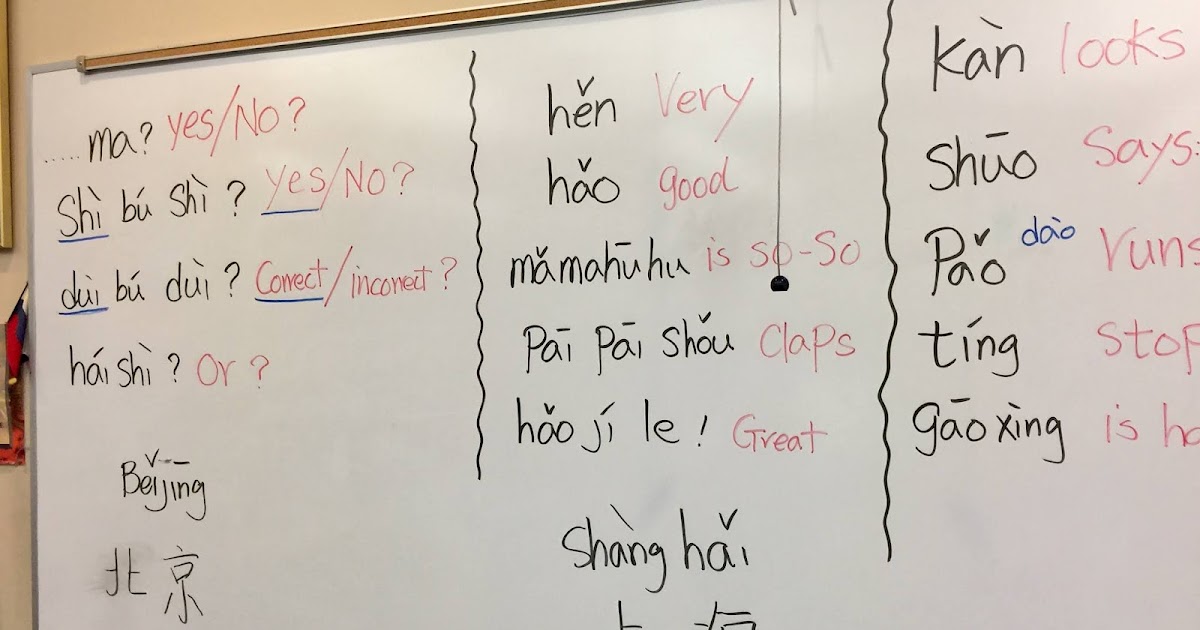 ..... ma? yes/No?
Shì bú shì? yes/No?
duì bú duì? Correct/incorrect?
háishì? Or?
Běijīng
北京
hěn Very
hǎo good
mǎmahūhu is so-So
Pāi Pāi Shǒu Claps
hǎo jí le! Great
Shànghǎi
kàn looks
Shūo Says:
Pǎo dào runs
tíng Stop
gāoxìng is